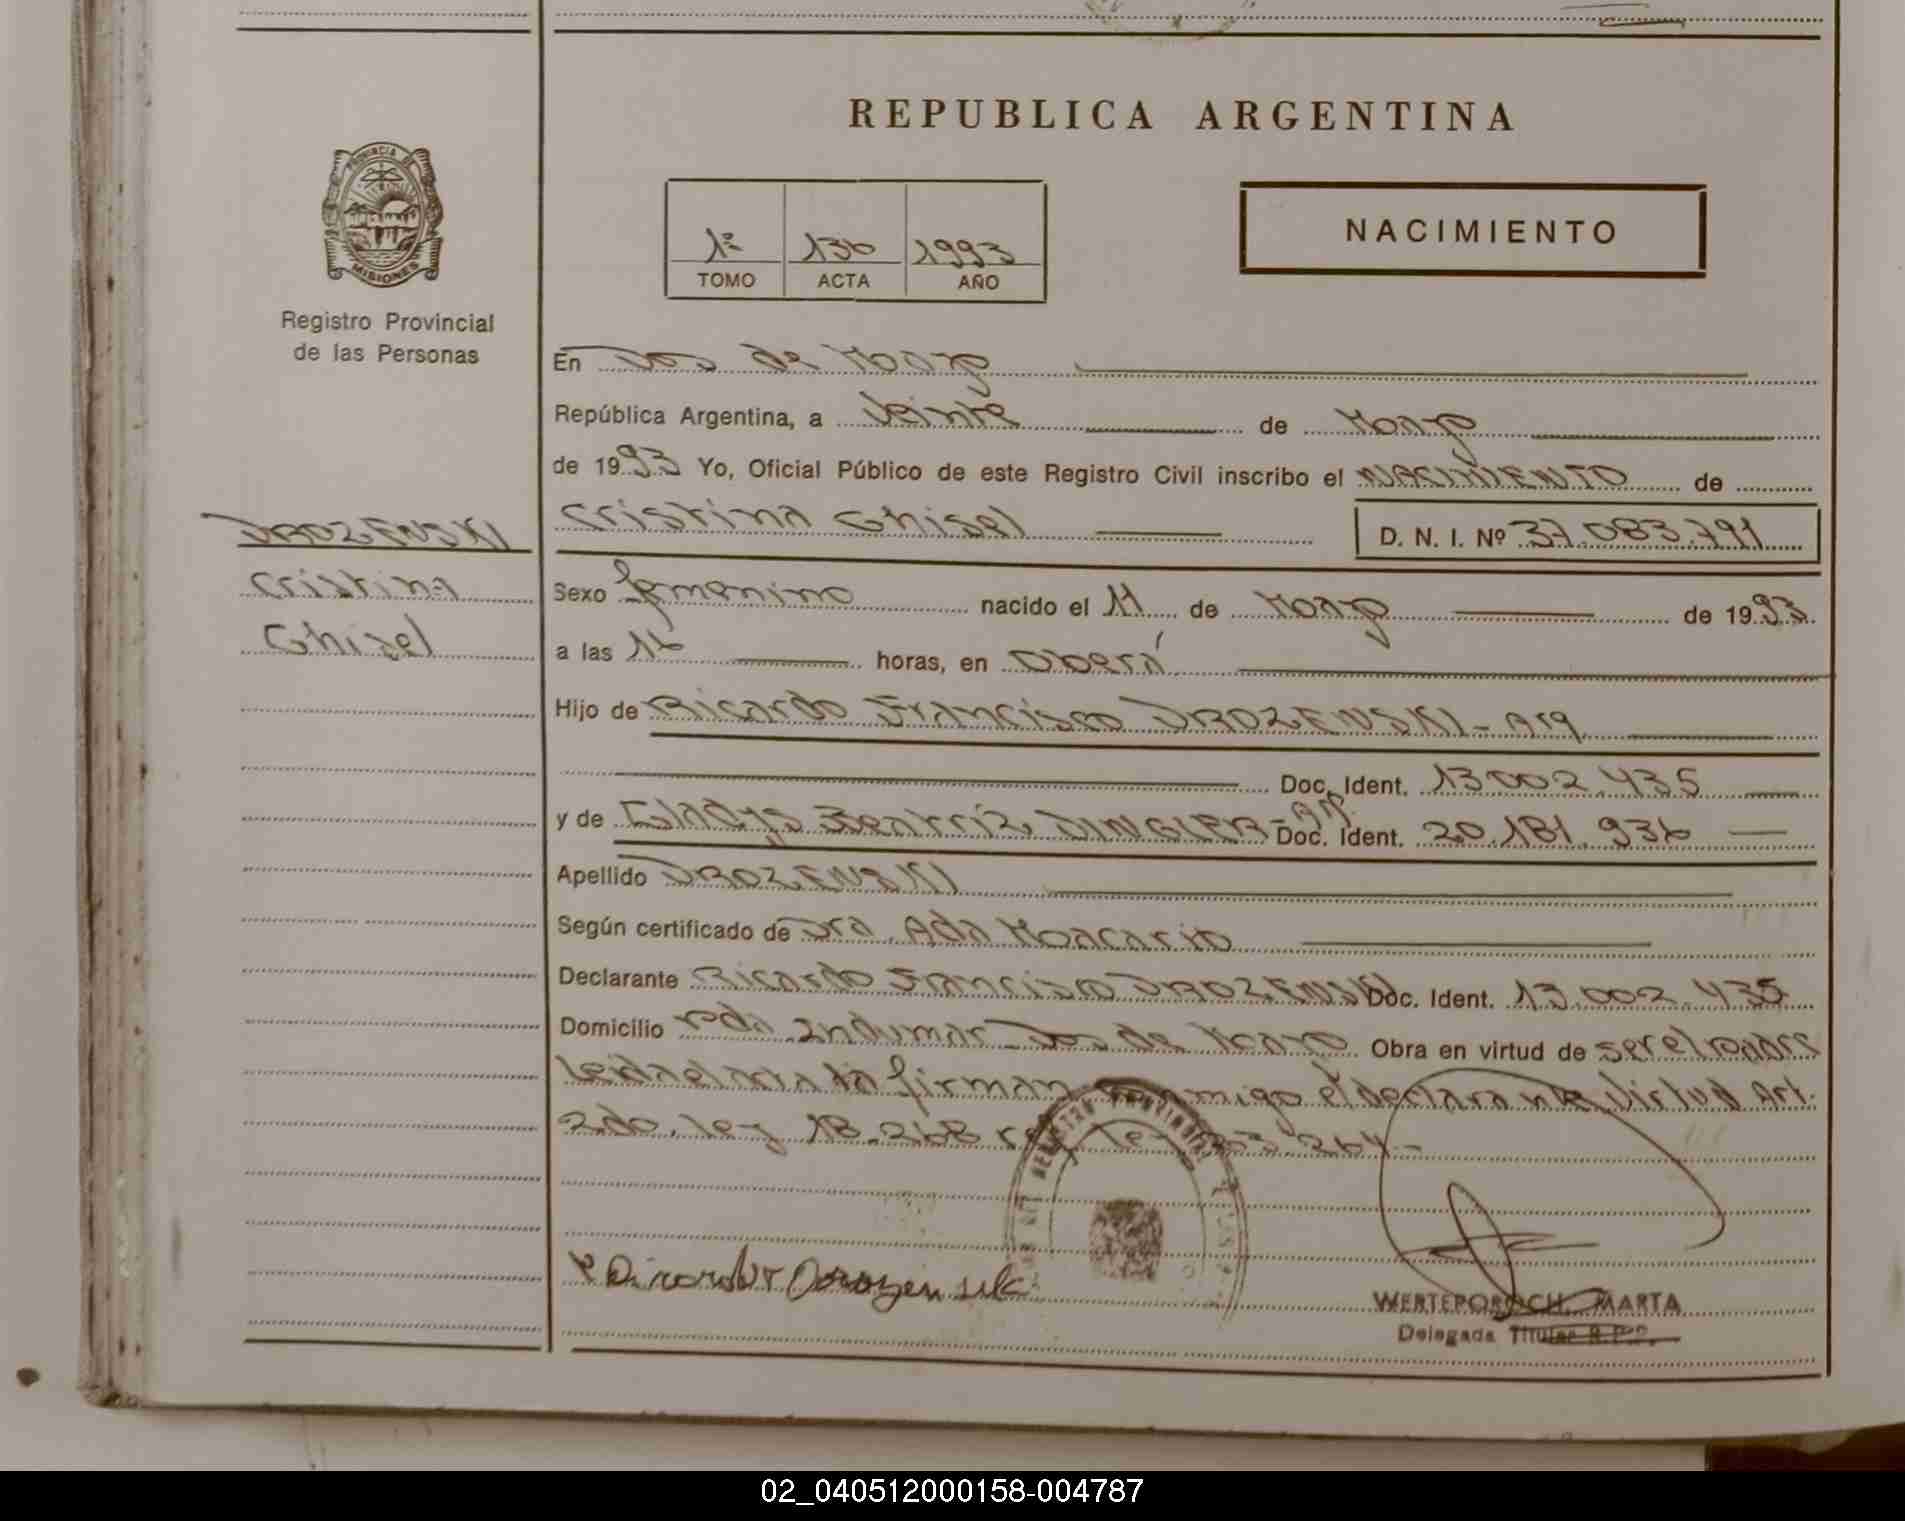 REPUBLICA ARGENTINA
PROVINCIA DE
MISIONES
Registro Provincial
de las Personas
1º 136 1993
TOMO ACTA AÑO
NACIMIENTO
En Dos de Mayo
República Argentina, a Veinte de Marzo
de 1993 Yo, Oficial Público de este Registro Civil inscribo el NACIMIENTO de
DROZENSKI
Cristina
Ghisel
Cristina Ghisel D. N. I. Nº 37.083.791
Sexo femenino nacido el 11 de Marzo de 1993
a las 16 horas, en Oberá
Hijo de Ricardo Francisco DROZENSKI - Arg
Doc. Ident. 13.002.435
y de Gladys Beatriz DINGLER - Arg Doc. Ident. 20.181.936
Apellido DROZENSKI
Según certificado de Dra. Ada Macarito
Declarante Ricardo Francisco DROZENSKI Doc. Ident. 13.002.435
Domicilio Pda. Indumar - Dos de Mayo Obra en virtud de ser el padre
Leida el acta la firman conmigo el declarante. Virtud Art.
2do. ley 18.248
REGISTRO PROVINCIAL
WERTEPOROCH, MARTA
Delegada Titular R.P.P.
02_040512000158-004787